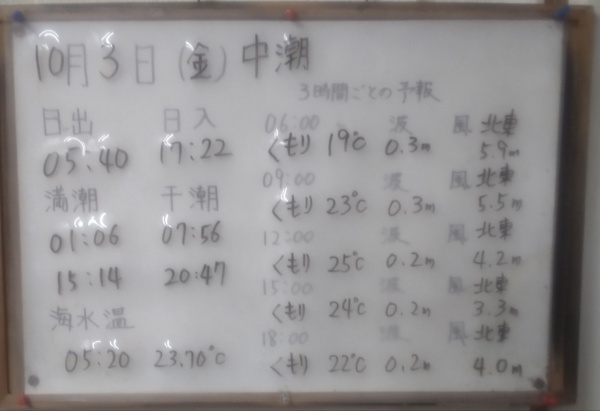 10月3日(金)中潮
3時間ごとの予報
日出 日入
05:40 17:22
満潮 干潮
01:06 07:56
15:14 20:47
海水温
05:20 23.70℃
06:00 波 風 北東
くもり 19℃ 0.3m 5.9m
09:00 波 風 北東
くもり 23℃ 0.3m 5.5m
12:00 波 風 北東
くもり 25℃ 0.2m 4.2m
15:00 波 風 北東
くもり 24℃ 0.2m 3.3m
18:00 波 風 北東
くもり 22℃ 0.2m 4.0m